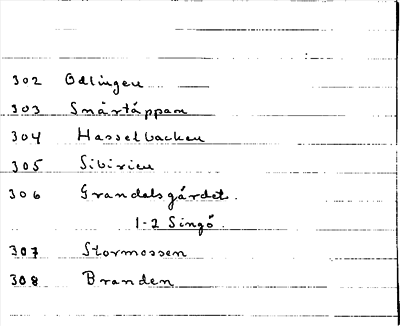 302 Odlingen
303 Snårtäppan
304 Hasselbacken
305 Sibirien
306 Grandalsgärdet.
1-2 Singö.
307 Stormossen
308 Branden